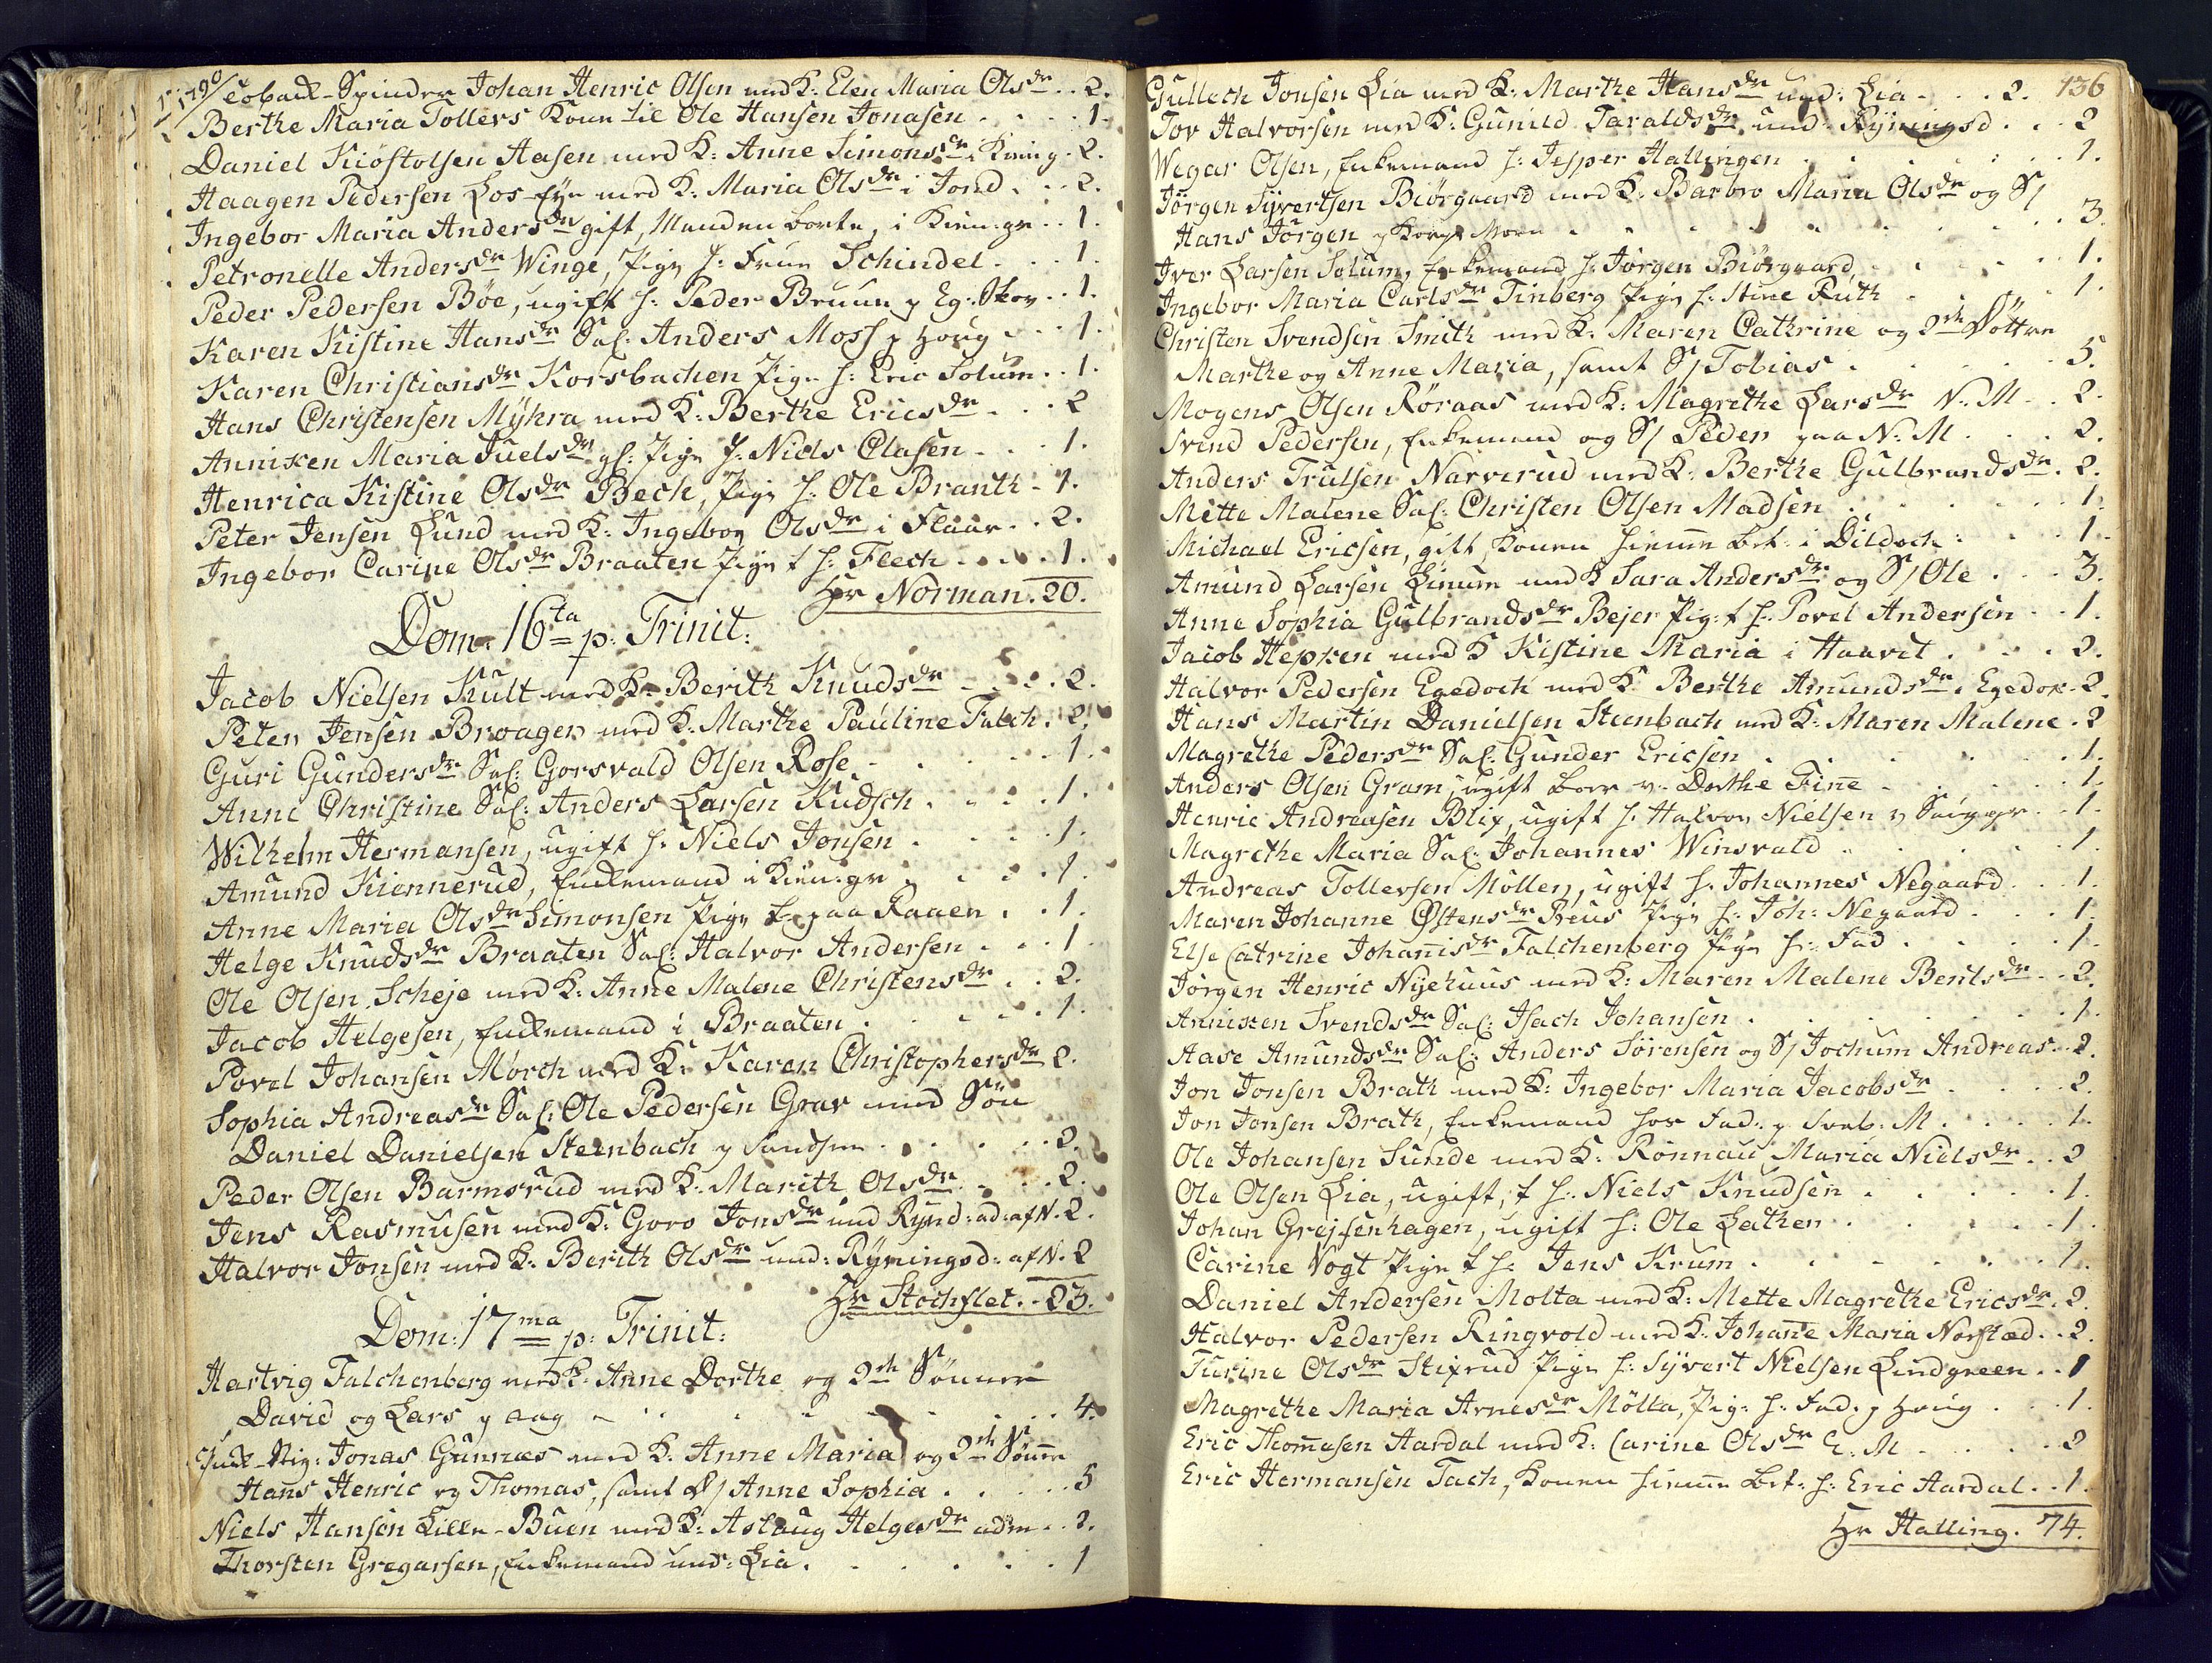 1790
Toback-Spinder Johan Henric Olsen med K: Elen Maria Olsdr . . 2.
Berthe Maria Tollers Kone til Ole Hansen Jonasen . . . . 1.
Daniel Kiøstolsen Aasen med K: Anne Simonsdr i Kien:g. 2.
Haagen Pedersen Los-Eje med K: Maria Olsdr i Jord . . . 2.
Ingebor Maria Andersdr gift, Manden borte, i Kien:gr . . 1.
Petronelle Andersdr Winge, Pige h: Frue Schindel . . . 1.
Peder Pedersen Böe, ugift h: Peder Bruun p Eg: Skov . . 1.
Karen Kistine Hansdr Sal: Anders Moss p Houg . . . 1.
Karen Christiansdr Korsbachen Pige h: Eric Solum . . 1.
Hans Christensen Mÿhra med K: Berthe Ericsdr . . . 2
Annixen Maria Juelsdr gl: Pige h: Niels Clasen . . . 1.
Henrica Kistine Olsdr Bech, Pige h: Ole Branth - 1.
Peter Jensen Lund med K: Ingebor Olsdr i Flaar . . 2.
Ingebor Carine Olsdr Braaten Pige f h: Flech . . . . 1.
Hr Norman. 20.
Dom: 16ta p: Trinit:
Jacob Nielsen Kult med K: Berith Knudsdr . . . . 2.
Peter Jensen Broager med K: Marthe Pauline Falch. 2.
Guri Gundersdr Sal: Gorsvald Olsen Rose . . . . 1.
Anne Christine Sal: Anders Larsen Kudsch . . . . 1.
Wilhelm Hermansen, ugift h: Niels Jonsen . . . . 1.
Amund Kiennerud, Enckemand i Kien:gr . . . . 1.
Anne Maria Olsdr Simonsen Pige f paa Raaen . . 1.
Helge Knudsdr Braaten Sal: Halvor Andersen . . . 1
Ole Olsen Scheje med K: Anne Malene Christensdr . . 2.
Jacob Helgesen, Enckemand i Braaten . . . . . 1.
Povel Johansen Mörch med K: Karen Christophersdr 2.
Sophia Andreasdr Sal: Ole Pedersen Grav med Sön
Daniel Danielsen Steenbach p Sandsen . . . . . 2.
Peder Olsen Barmsrud med K: Marith Olsdr . . . . 2.
Jens Rasmusen med K: Goro Jonsdr und Rÿnd: ad: af N. 2.
Halvor Jonsen med K: Berith Olsdr und: Rÿningsd: af N. 2
Hr Stochflet. - 23.
Dom: 17ma p: Trinit:
Hartvig Falchenberg med K: Anne Dorthe og 2de Sönner
David og Lars p Aag . . . . . . 4.
Jonas Gunnæs med K: Anne Maria og 2de Sönner
Hans Henric og Thomas, samt D/ Anne Sophia . . . . . 5
Niels Hansen Lille-Buen med K: Aslaug Helgesdr adm . . 2.
Thorsten Gregarsen, Enkemand und: Lia . . . . . . 1
136
Gullech Jonsen Lia med K: Marthe Hansdr und: Lia . . . 2.
Tov Halvorsen med K: Gunild Taraldsdr und: Rÿningsd . . . 2
Wegar Olsen, Enkemand h: Jesper Hallingen . . . . . . 1.
Jörgen Sÿvertsen Biörgaard med K: Barbro Maria Olsdr og S/
Hans Jörgen . . . . . . 3.
Iver Larsen Solum, Enkemand h: Jörgen Biörgaard . . . . 1.
Ingebor Maria Carlsdr Tinberg Pige h: Stine Ruth . . . . 1.
Christen Svendsen Smith med K: Maren Cathrine og 2de Döttre
Marthe og Anne Maria, samt S/ Tobias . . . . . 5.
Mogens Olsen Röraas med K: Magrethe Larsdr N: M . . 2.
Svend Pedersen, Enkemand og S/ Peder paa N: M . . . . 2.
Anders Trulsen Narverud med K: Berthe Gulbrandsdr . 2.
Mette Malene Sal: Christen Olsen Madsen . . . . . 1.
Michael Ericsen, gift, Konen hiemme bet: i Dildoch . . . . 1.
Amund Larsen Linum med K Sara Andersdr og S/ Ole . . . 3.
Anne Sophia Gulbrandsdr Bejer Pig: f h: Povel Andersen . . 1.
Jacob Hepsen med K Kistine Maria i Haavet . . . . 2.
Halvor Pedersen Egedoch med K: Berthe Amundsdr i Egedok . 2.
Hans Martin Danielsen Steenbach med K: Maren Malene . 2
Magrethe Pedersdr Sal: Gunder Ericsen . . . . . . 1.
Anders Olsen Gram, ugift boer v. Dorthe Fine . . . . 1.
Henric Andreasen Blix, ugift h: Halvor Nielsen . . 1.
Magrethe Maria Sal: Johannes Winsvald . . . . . 1.
Andreas Tollevsen Möllen, ugift h: Johannes Negaard . . . 1.
Maren Johanne Østensdr Preus Pige h: Joh: Negaard . . . 1.
Else Catrine Johanisdr Falchenberg Pige h: Fad . . . . 1.
Jörgen Henric Nÿehuus med K: Maren Malene Bentsdr . . 2.
Annixen Svendsdr Sal: Isach Johansen . . . . . . 1.
Aase Amundsdr Sal: Anders Sörensen og S/ Jochum Andreas . . 2.
Jon Jonsen Brath med K: Ingebor Maria Jacobsdr . . . . 2.
Jon Jonsen Brath, Enkemand hos Fad: p Svab: M . . . . 1.
Ole Johansen Sunde med K: Rönnau Maria Nielsdr . . 2
Ole Olsen Lia, ugift, f h: Niels Knudsen . . . . . 1.
Johan Grejfenhagen, ugift h: Ole Lathen . . . . . 1.
Carine Vogt Pige f h: Jens Krum . . . . . . 1.
Daniel Andersen Molta med K: Mette Magrethe Ericsdr . 2.
Halvor Pedersen Ringvold med K: Johane Maria Norstad . . 2.
Turine Olsdr Stixrud Pige h: Sÿvert Nielsen Lindgreen . . 1
Magrethe Maria Arnesdr Mölta, Pig: h: Fad: p Houg . . . 1.
Eric Thomasen Aardal med K: Carine Olsdr C: M . . . . 2
Eric Hermansen Tach, Konen hiemme bet: h: Eric Aardal . . 1.
Hr Halling. 74.